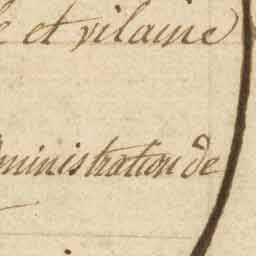 et vilaine
ministration de